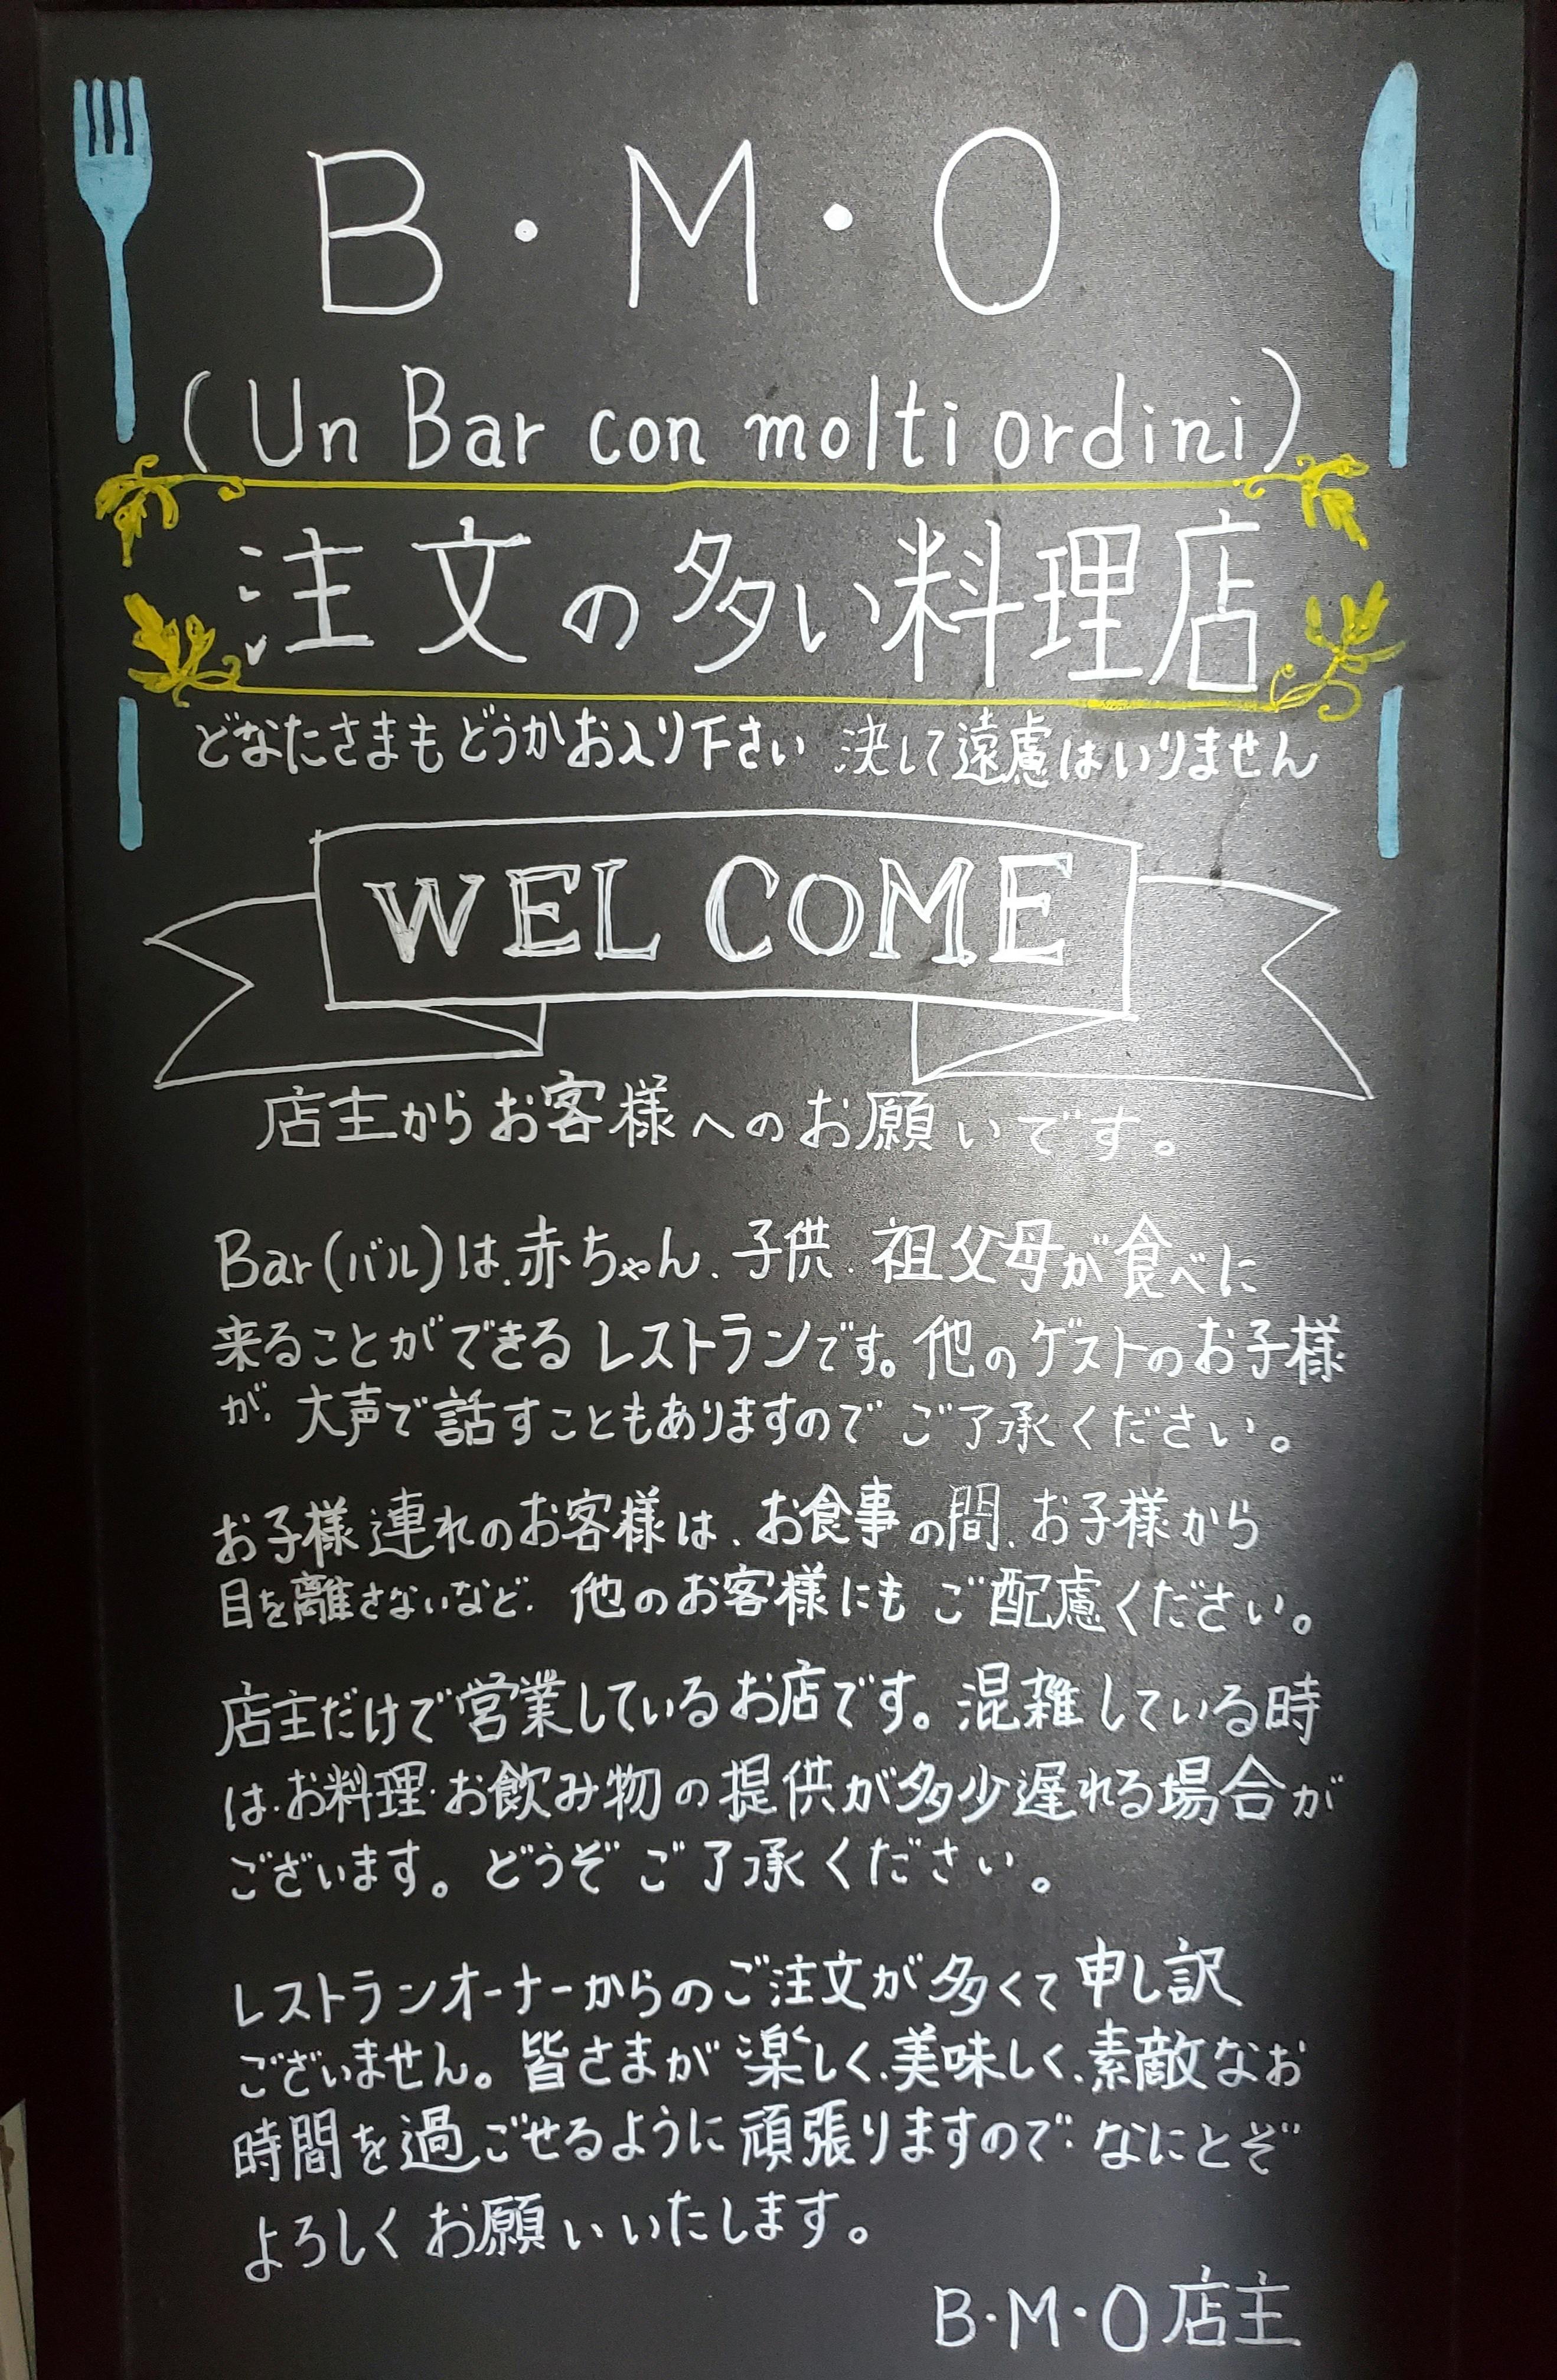 B・M・O
(Un Bar con molti ordini)
注文の多い料理店
どなたさまもどうかお入り下さい 決して遠慮はいりません
WELCOME
店主からお客様へのお願いです。
Bar(バル)は、赤ちゃん、子供、祖父母が食べに
来ることができるレストランです。他のゲストのお子様
が、大声で話すこともありますのでご了承ください。
お子様連れのお客様は、お食事の間、お子様から
目を離さないなど、他のお客様にもご配慮ください。
店主だけで営業しているお店です。混雑している時
は、お料理・お飲み物の提供が多少遅れる場合が
ございます。どうぞご了承ください。
レストランオーナーからのご注文が多くて申し訳
ございません。皆さまが楽しく、美味しく、素敵なお
時間を過ごせるように頑張りますので、なにとぞ
よろしくお願いいたします。
B・M・O店主